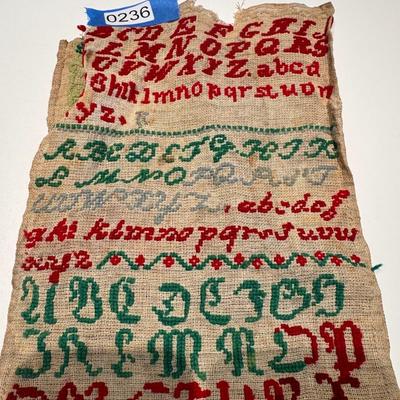 0236
B C D E F G H I J
L M N O P Q R S
U V W X Y Z. a b c d
g h i k l m n o p q r s t u v n
y z.
A B C D E F G H I K
L M N O P Q R S T
U V W X Y Z. a b c d e f
g h i k l m n o p q r s t u v w
x y z
A B C D E F G H
I K L M N O P